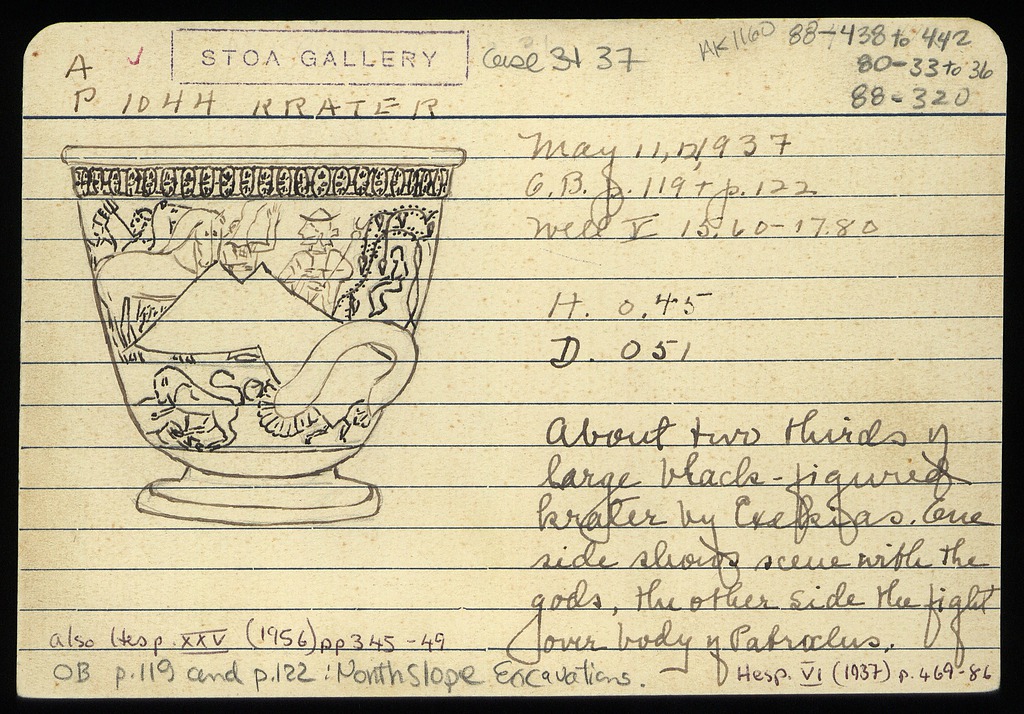 A ✓ STOA GALLERY Case 31 37 AK 1160 88-438 to 442
80-33 to 36
P 1044 KRATER 88-320
May 11, 12, 1937
O.B. p. 119 + p. 122
Well V 15.60-17.80
H. 0.45
D. 051
About two thirds of
large black-figured
krater by Exekias. One
side shows scene with the
gods, the other side the fight
over body of Patroclus.
also Hesp. XXV (1956) pp 345-49
OB p.119 and p.122 : North Slope Excavations.
Hesp. VI (1937) p. 469-86